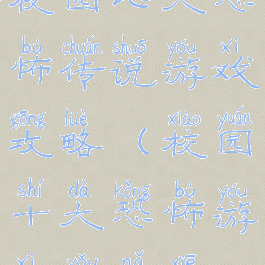 校园十大恐
bù chuán shuō yóu xì
怖传说游戏
gōng lüè xiào yuán
攻略（校园
shí dà kǒng bù yóu
十大恐怖游
xì yǒu nǎ xiē